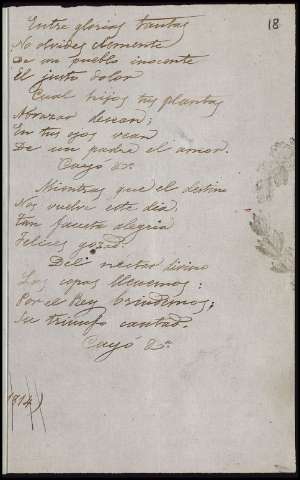 18
Entre glorias tantas
No olvides clemente
De un pueblo inocente
El justo dolor
Cual hijos tus plantas
Abrazar desean;
En tus ojos vean
De un padre el amor.
Cayó &a.
Mientras que el destino
Nos vuelve este dia,
Tan fausta alegria
Felices gozad.
Del nectar divino
Las copas llenemos:
Por el Rey brindemos,
Su triunfo cantad.
Cayó &a.
1814)